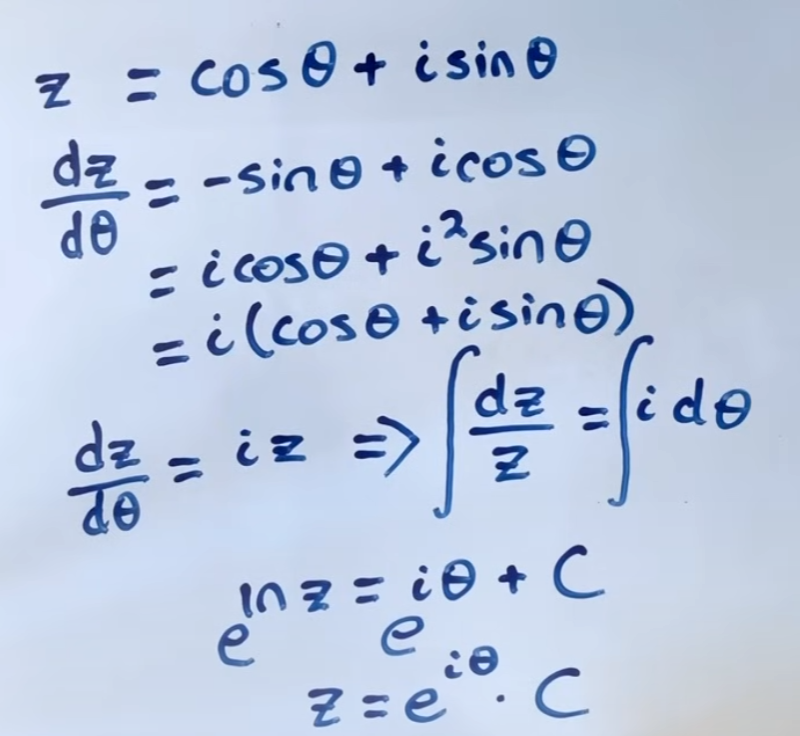 z = cosθ + i sinθ
dz/dθ = -sinθ + i cosθ
= i cosθ + i² sinθ
= i(cosθ + i sinθ)
dz/dθ = iz => ∫ dz/z = ∫ i dθ
e^(ln z) = e^(iθ + C)
z = e^(iθ) · C